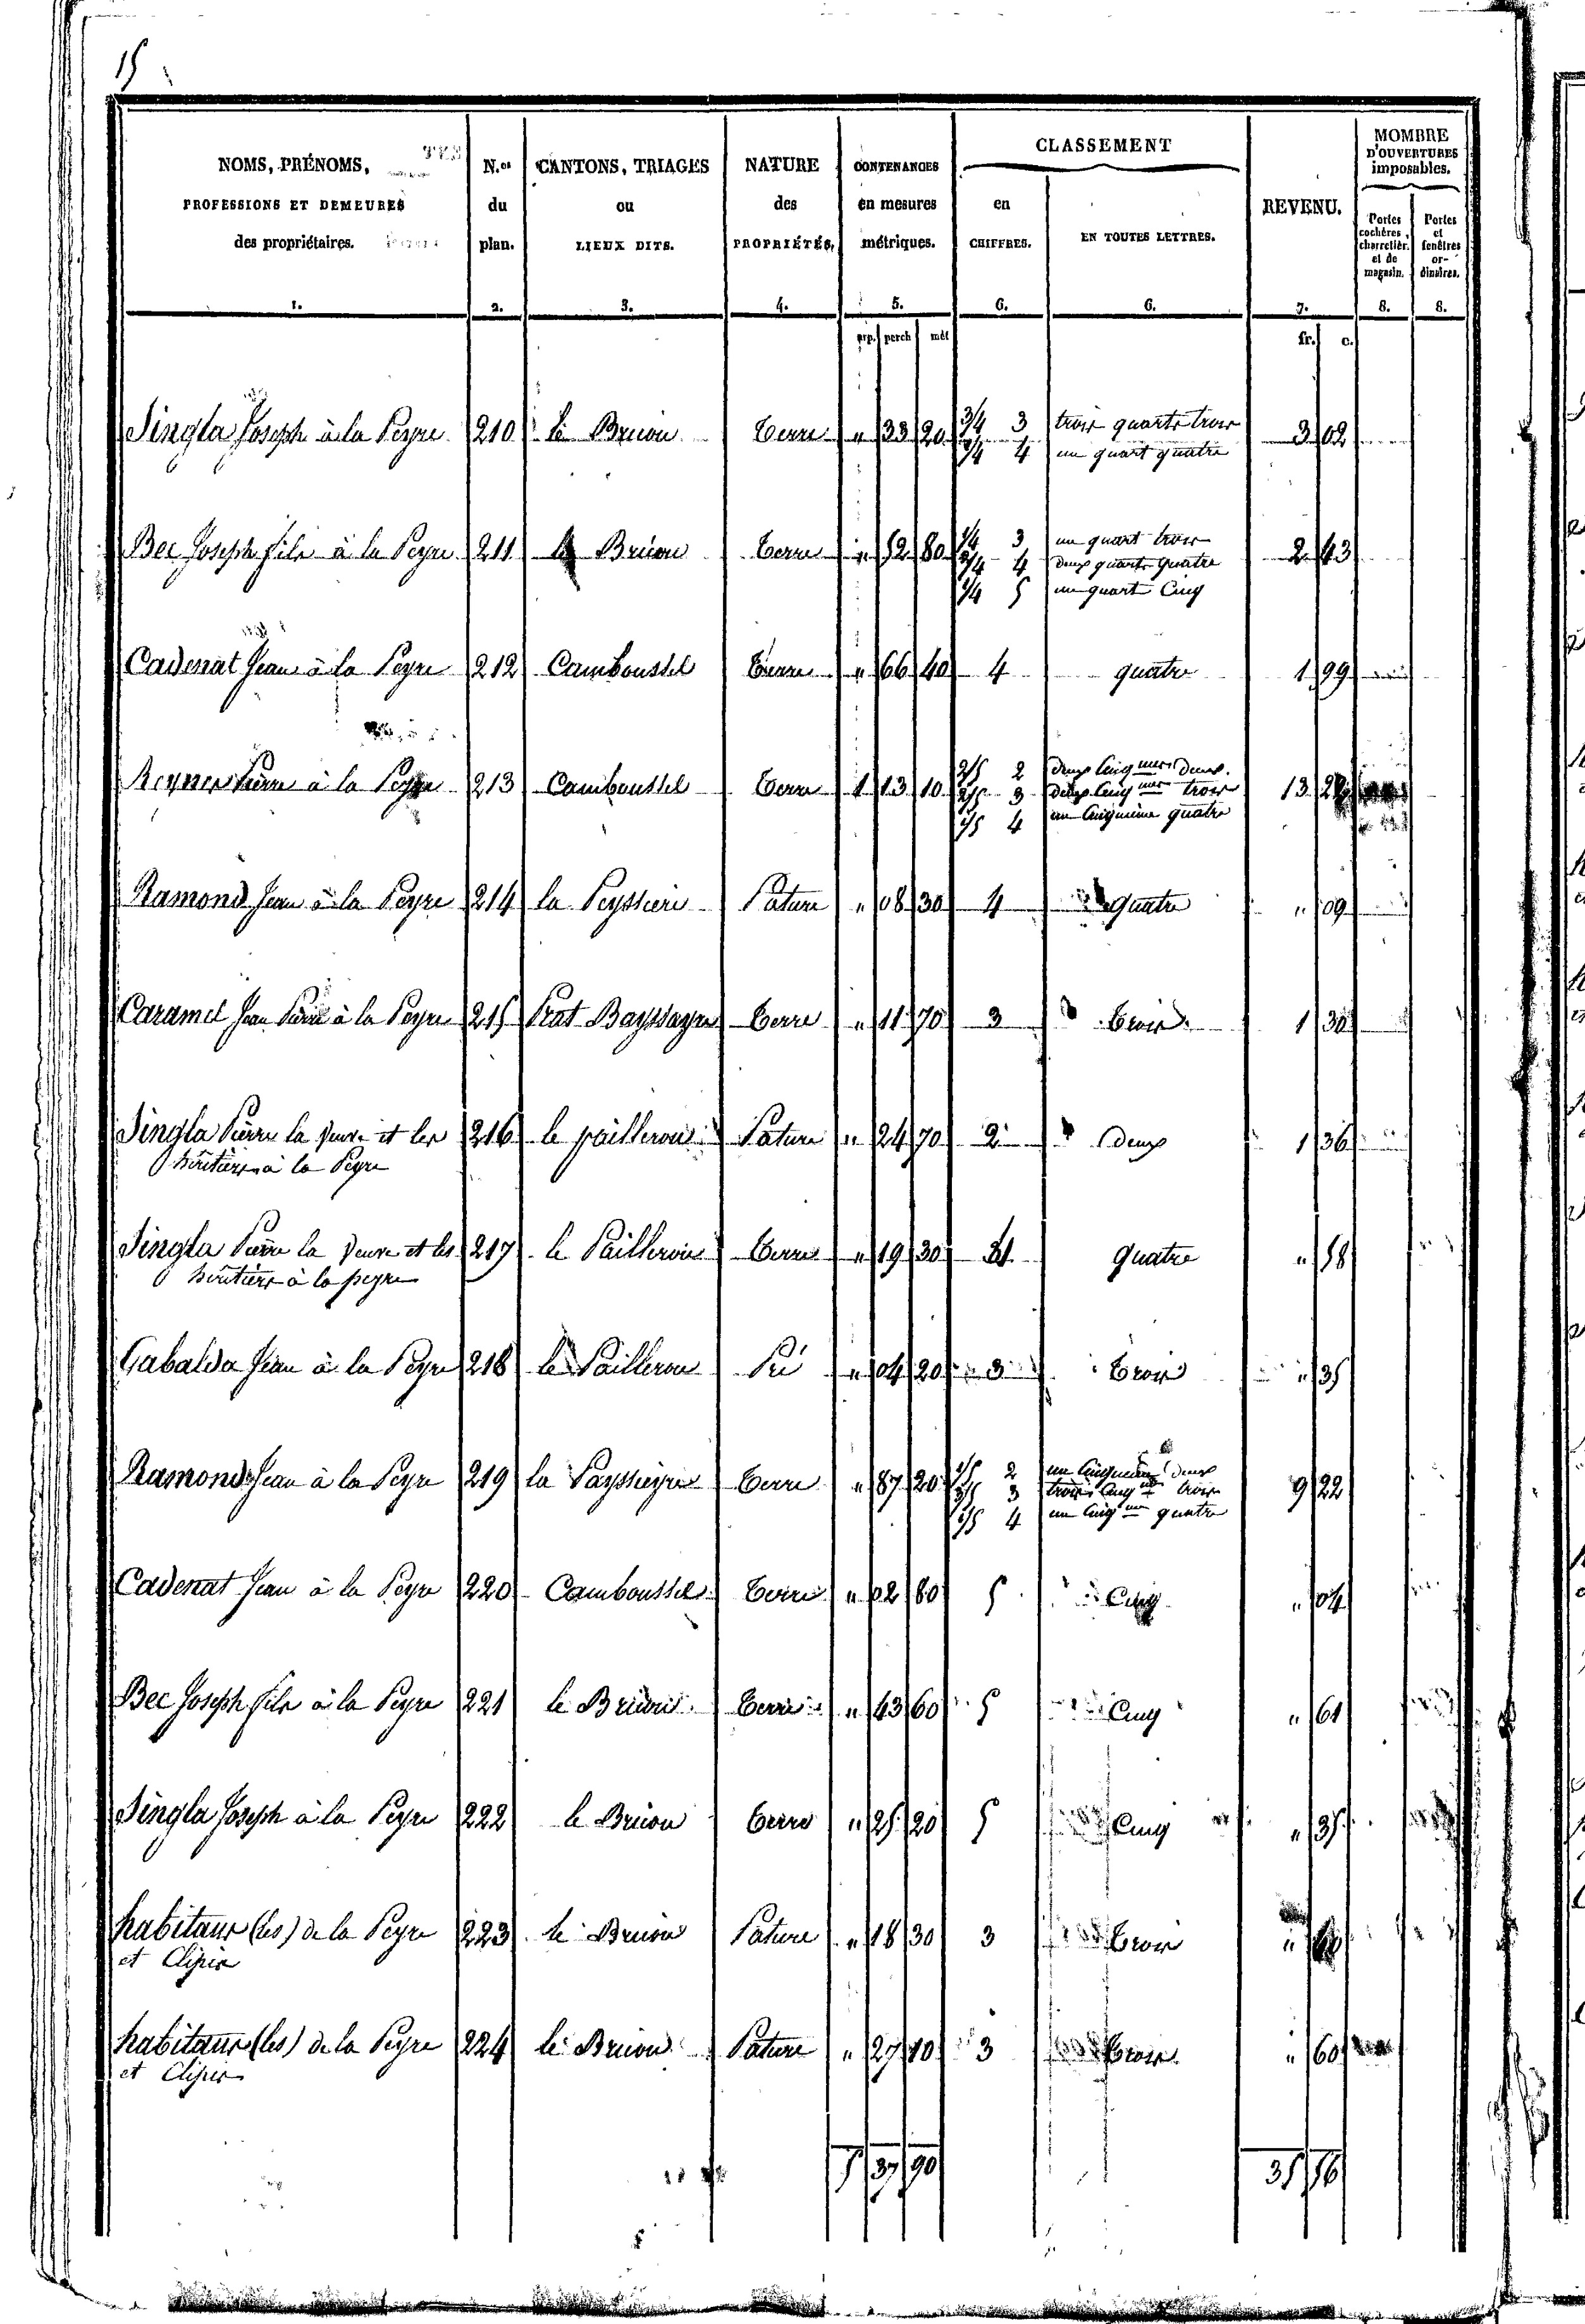 15
NOMS, PRÉNOMS,
PROFESSIONS ET DEMEURES
des propriétaires.
1.
N.os
du
plan.
2.
CANTONS, TRIAGES
ou
LIEUX DITS.
3.
NATURE
des
PROPRIÉTÉS.
4.
CONTENANCES
en mesures
métriques.
5.
CLASSEMENT
en
CHIFFRES.
6.
EN TOUTES LETTRES.
6.
REVENU.
7.
MOMBRE
D'OUVERTURES
imposables.
Portes
cochères,
charretièr.
et de
magasin.
8.
Portes
et
fenêtres
or-
dinaires.
8.
arp. perch mèt fr. c.
Singla Joseph à la Peyre 210 le Bruiou terre " 33 20 3/4 3 trois quarts trois 3 02
1/4 4 un quart quatre
Bec Joseph fils à la Peyre 211 le Bruiou terre " 52 80 1/4 3 un quart trois 2 43
2/4 4 deux quarts quatre
1/4 5 un quart Cinq
Cadenat Jean à la Peyre 212 Camboussel terre " 66 40 4 quatre 1 99
Reynes Pierre à la Peyre 213 Camboussel terre 1 13 10 2/5 2 deux Cinq mes deux 13
2/5 3 deux Cinq mes trois
1/5 4 un Cinquième quatre
Ramond Jean à la Peyre 214 la Peyssiere Pature " 08 30 4 quatre " 09
Caramel Jean Pierre à la Peyre 215 Prat Bayssayre terre " 11 70 3 trois 1 30
Singla Pierre la veuve et les 216 le pailleroux Pature " 24 70 2 deux 1 36
héritiers à la Peyre
Singla Pierre la veuve et les 217 le Pailleroux terre " 19 30 4 quatre " 58
héritiers à la peyre
Gabalda Jean à la Peyre 218 le Pailleroux Pré " 04 20 3 trois " 35
Ramond Jean à la Peyre 219 la Payssieyre terre " 87 20 1/5 2 un Cinquième deux 9 22
3/5 3 trois Cinq mes trois
1/5 4 un Cinq me quatre
Cadenat Jean à la Peyre 220 Camboussel terre " 02 80 5 Cinq " 04
Bec Joseph fils à la Peyre 221 le Bruiou terre " 43 60 5 Cinq " 61
Singla Joseph à la Peyre 222 le Bruiou terre " 25 20 5 Cinq " 35
habitans (les) de la Peyre 223 le Bruiou Pature " 18 30 3 trois "
et Clipis
habitans (les) de la Peyre 224 le Bruiou Pature " 27 10 3 trois " 60
et Clipis
5 37 90 35 56